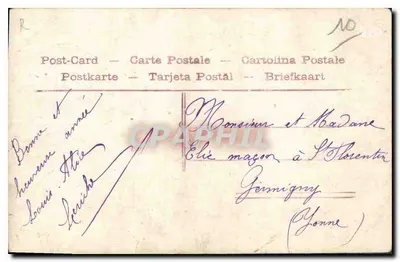 R
10
Post-Card — Carte Postale — Cartolina Postale
Postkarte — Tarjeta Postâl — Briefkaart
Bonne et
heureuse année
Louis. Alice
Monsieur et Madame
Elie maçon à St Florentin
Germigny
(Yonne)
CPAPHIL